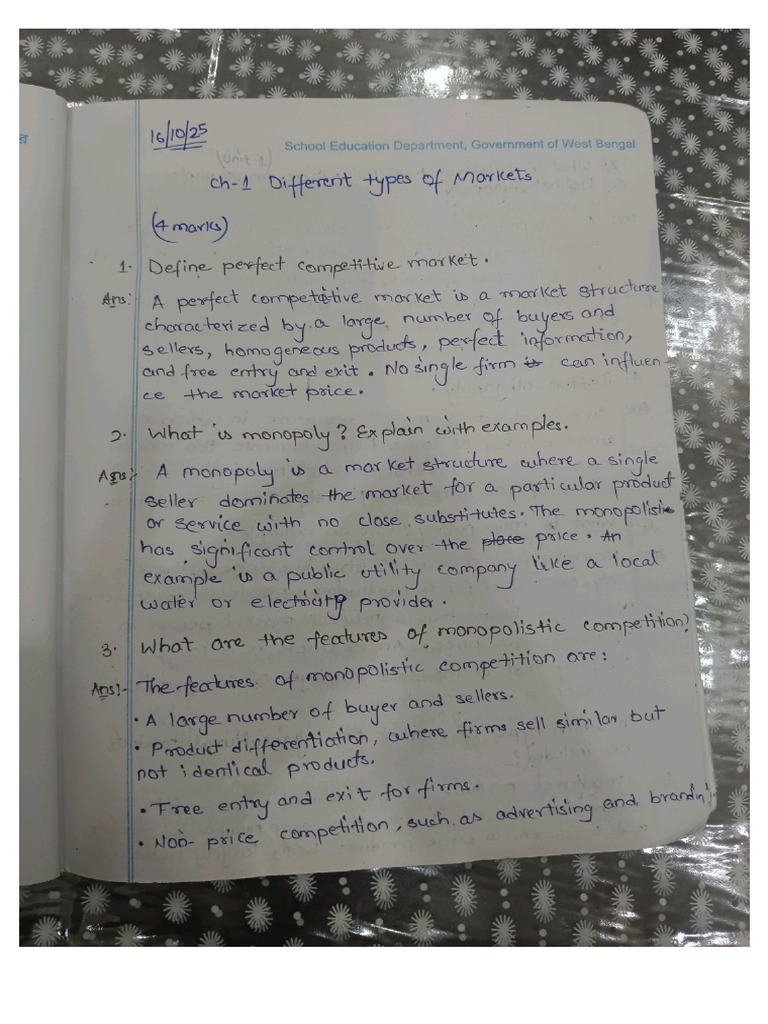 র
16/10/25
School Education Department, Government of West Bengal
(Unit-1)
Ch-1 Different types of Markets
(4 marks)
1. Define perfect competitive market.
Ans:- A perfect competitive market is a market structure
characterized by a large number of buyers and
sellers, homogeneous products, perfect information,
and free entry and exit. No single firm is can influen-
ce the market price.
2. What is monopoly? Explain with examples.
Ans:- A monopoly is a market structure where a single
seller dominates the market for a particular product
or service with no close substitutes. The monopolist
has significant control over the place price. An
example is a public utility company like a local
water or electricity provider.
3. What are the features of monopolistic competition?
Ans:- The features of monopolistic competition are:
• A large number of buyer and sellers.
• Product differentiation, where firms sell similar but
not identical products.
• Free entry and exit for firms.
• Non-price competition, such as advertising and brandin